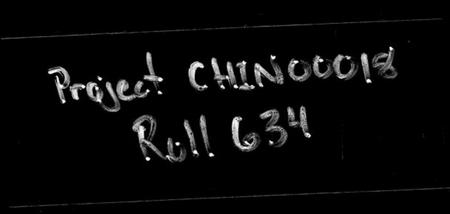 Project CHINO0018
Roll 634